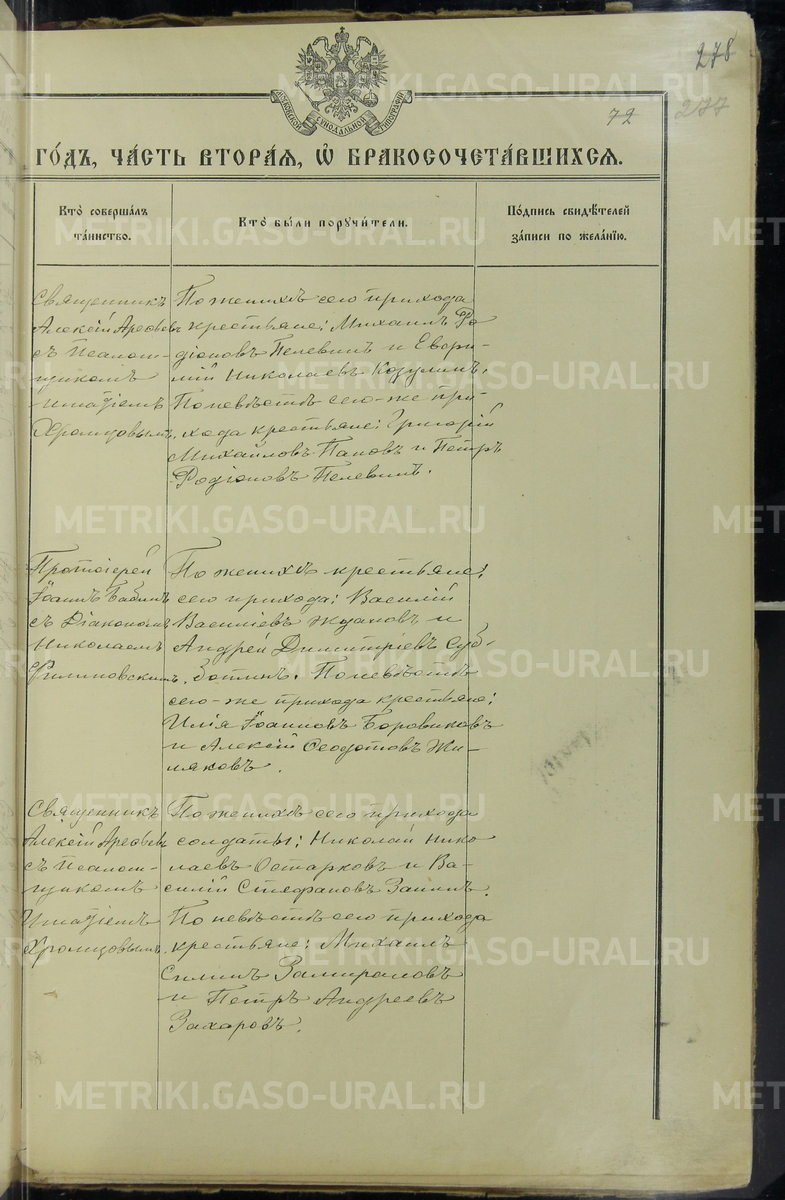 278
277
72
МОСКОВСКОЙ СѴНОДАЛЬНОЙ ТИПОГРАФІИ
ГО́ДЪ, ЧА́СТЬ ВТОРА́Я, Ѿ БРАКОСОЧЕТА́ВШИХСЯ.
Кто̀ соверша́лъ
та́инство.
Кто̀ бы́ли пору́чители.
По́дпись свидѣ́телей
за́писи по жела́нїю.
Священникъ
Алексій Арефьевъ
съ Псалом-
щикомъ
Игнатіемъ
Хромцовымъ.
По женихѣ сего прихода
крестьяне: Михаилъ Ро
діоновъ Пелевинъ и Евфи-
мій Николаевъ Козулинъ.
По невѣстѣ сего-же при-
хода крестьяне: Григорій
Михайловъ Пановъ и Петръ
Родіоновъ Пелевинъ.
Протоіерей
Іоаннъ Бабинъ
съ Діакономъ
Николаемъ
Филиповскимъ.
По женихѣ крестьяне,
сего прихода: Василій
Васильевъ Ждановъ и
Андрей Димитріевъ Суб-
ботинъ. По невѣстѣ
сего-же прихода крестьяне:
Илія Іоанновъ Боровиковъ
и Алексій Ѳеодотовъ Жи-
ляковъ.
Священникъ
Алексій Арефьевъ
съ Псалом-
щикомъ
Игнатіемъ
Хромцовымъ.
По женихѣ сего прихода
солдаты: Николай Нико
лаевъ Остарковъ и Ва-
силій Стефановъ Заинъ.
По невѣстѣ сего прихода
крестьяне: Михаилъ
Силинъ Замираловъ
и Петръ Андреевъ
Захаровъ.
METRIKI.GASO-URAL.RU